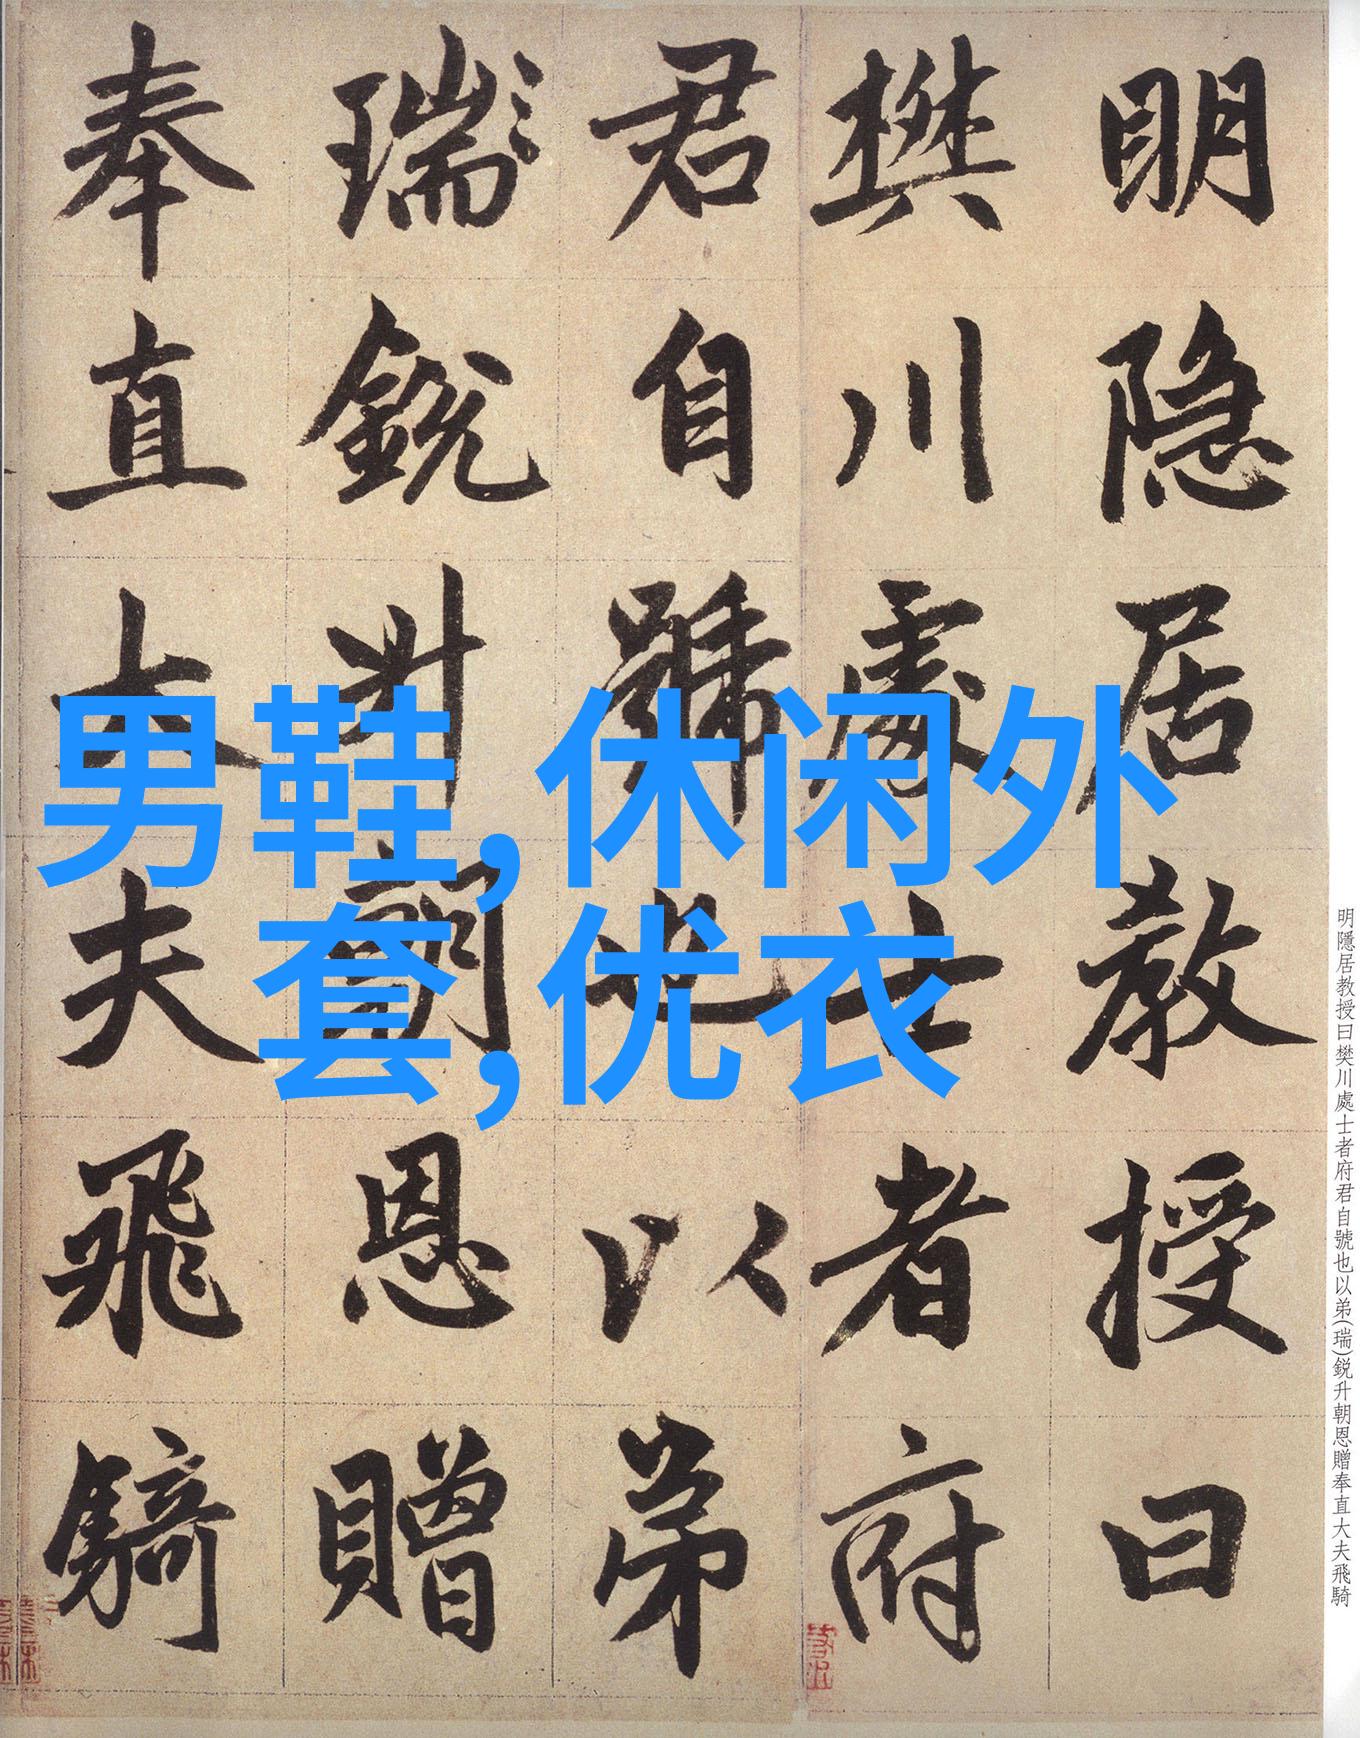 明隐居教授曰
樊川處士者府
君自號也以弟
瑞鋭升朝恩贈
奉直大夫飛騎
男鞋,休闲外
套,优衣
明隱居教授曰樊川處士者府君自號也以弟(瑞)鋭升朝恩贈奉直大夫飛騎